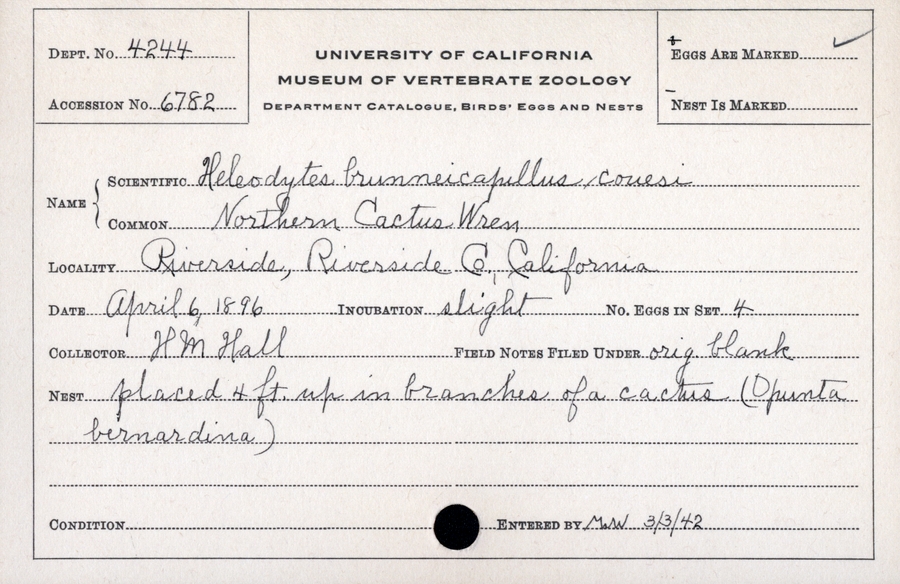 DEPT. NO. 4244
ACCESSION NO. 6782
UNIVERSITY OF CALIFORNIA
MUSEUM OF VERTEBRATE ZOOLOGY
DEPARTMENT CATALOGUE, BIRDS' EGGS AND NESTS
+
EGGS ARE MARKED ✓
–
NEST IS MARKED
NAME { SCIENTIFIC Heleodytes brunneicapillus couesi
COMMON Northern Cactus Wren
LOCALITY Riverside, Riverside Co, California
DATE April 6, 1896 INCUBATION slight NO. EGGS IN SET 4
COLLECTOR H M Hall FIELD NOTES FILED UNDER orig. blank
NEST placed 4 ft. up in branches of a cactus (Opunta
bernardina)
CONDITION ENTERED BY M.W 3/3/42